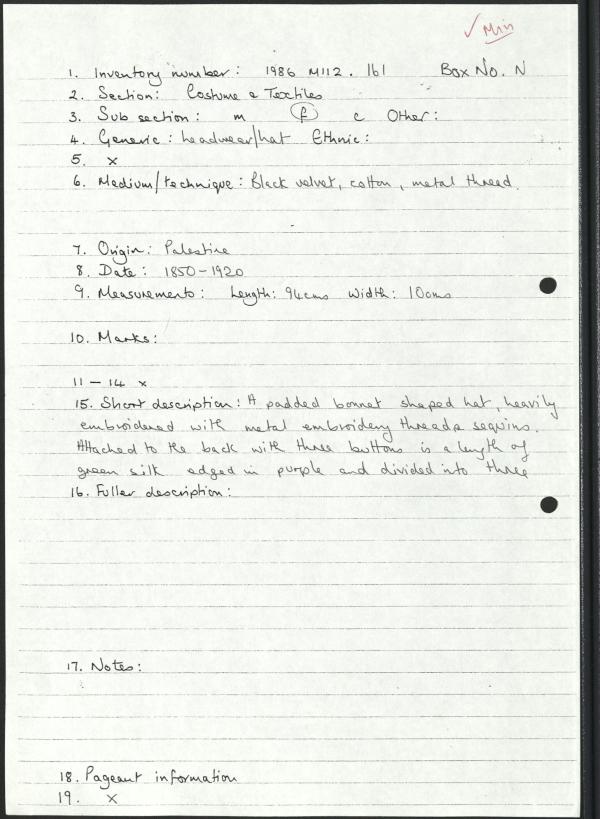 ✓ Min
1. Inventory number: 1986 M112. 161 Box No. N
2. Section: Costume & Textiles
3. Sub section: m f c Other:
4. Generic: headwear/hat Ethnic:
5. x
6. Medium/technique: Black velvet, cotton, metal thread.
7. Origin: Palestine
8. Date: 1850-1920
9. Measurements: Length: 94cms Width: 10cms
10. Marks:
11 - 14 x
15. Short description: A padded bonnet shaped hat, heavily
embroidered with metal embroidery thread & sequins.
Attached to the back with three buttons is a length of
green silk edged in purple and divided into three
16. Fuller description:
17. Notes:
18. Pageant information
19. x